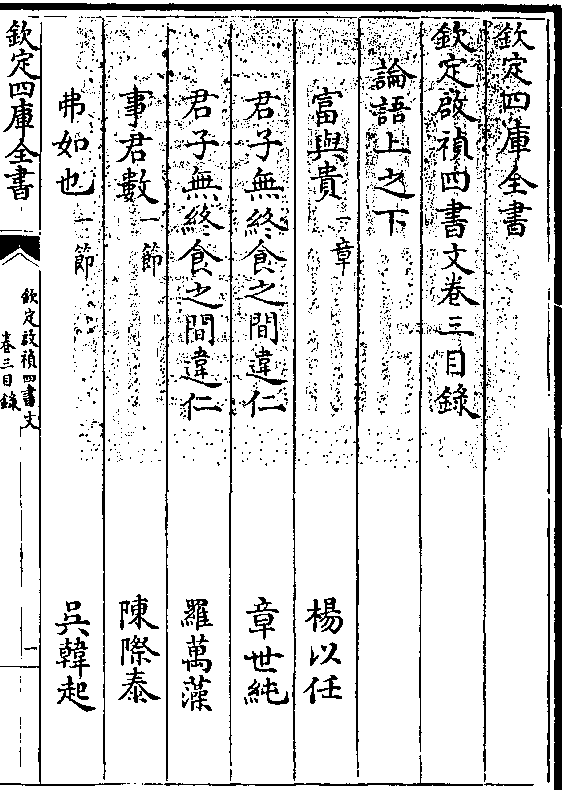 欽定四庫全書
欽定啟禎四書文卷三目錄
論語上之下
富與貴一章 楊以任
君子無終食之間違仁 章世純
君子無終食之間違仁 羅萬藻
事君數一節 陳際泰
弗如也一節 吳韓起
欽定四庫全書
欽定啟禎四書文
卷三目錄
一